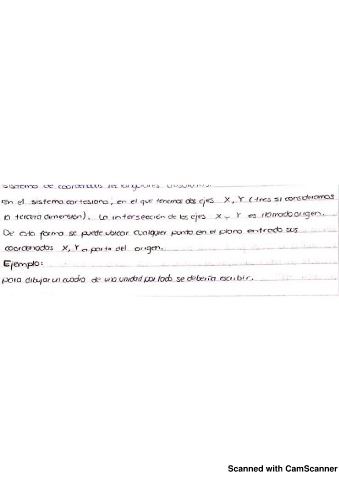 sistema de coordenadas rectangulares absolutas.
En el sistema cartesiano, en el que tenemos dos ejes X, Y (tres si consideramos
la tercera dimension). La intersección de los ejes X - Y es llamado origen.
De esta forma se puede ubicar cualquier punto en el plano entrado sus
coordenadas X, Y a partir del origen.
Ejemplo:
para dibujar un cuadro de una unidad por lado se deberia escribir.
Scanned with CamScanner